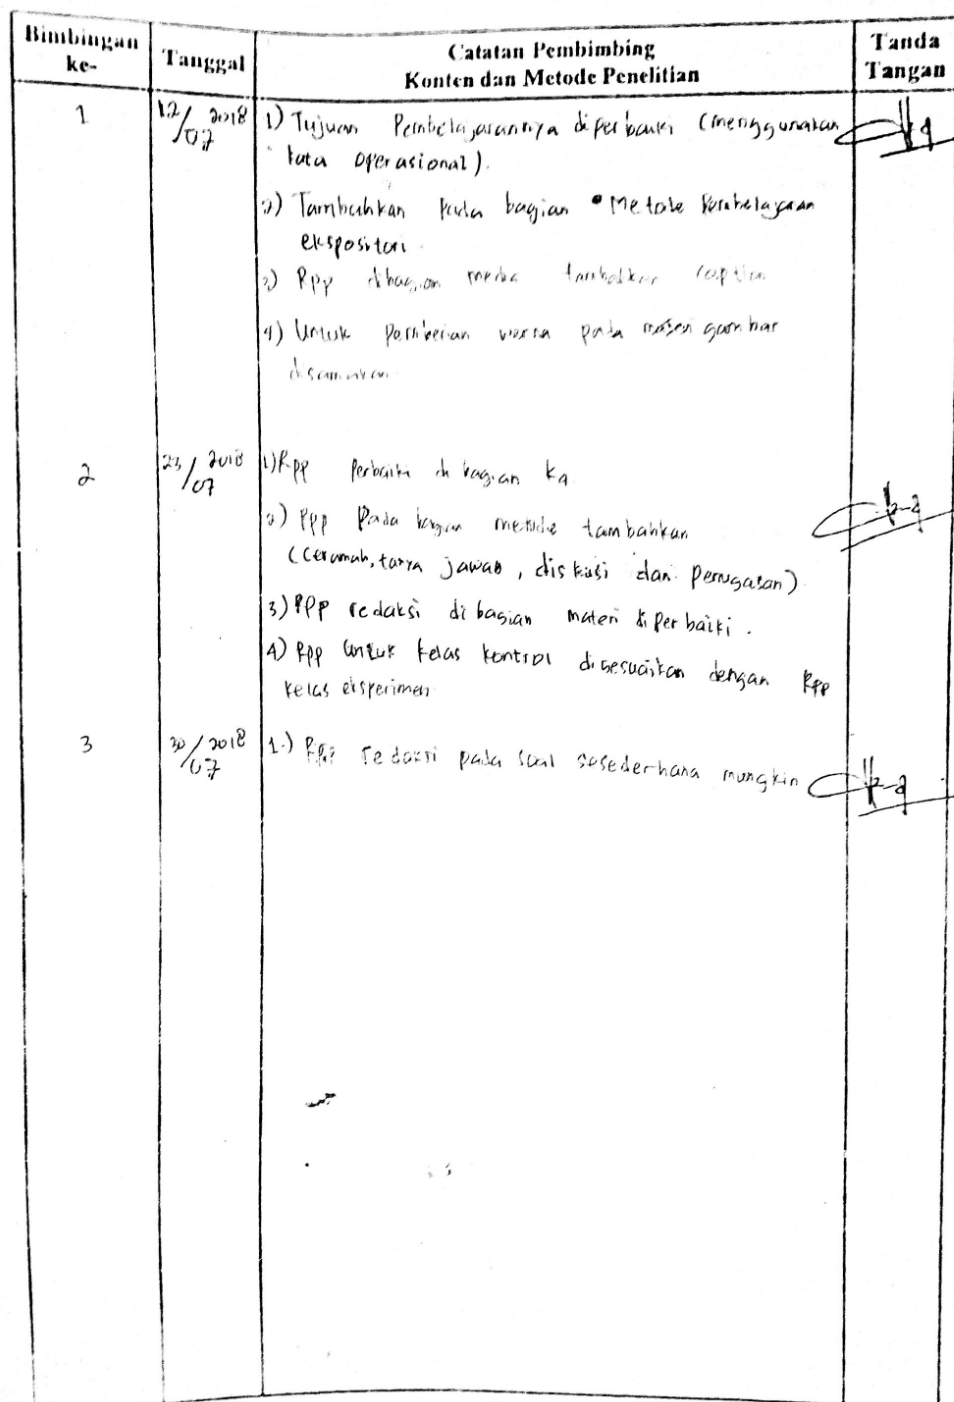 Bimbingan ke-
Tanggal
Catatan Pembimbing
Konten dan Metode Penelitian
Tanda Tangan
1
12/07 2018
1) Tujuan Pembelajarannya diperbaiki (menggunakan
kata operasional).
2) Tambahkan pada bagian • Metode Pembelajaran
ekspositori
3) Rpp dibagian media tambahkan
4) Untuk pemberian warna pada materi gambar
disamakan
2
23/07 2018
1) Rpp Perbaiki di bagian
2) Rpp Pada bagian metode tambahkan
(Ceramah, tanya jawab, diskusi dan penugasan)
3) Rpp redaksi di bagian materi diperbaiki.
4) Rpp untuk kelas kontrol disesuaikan dengan Rpp
kelas eksperimen
3
30/07 2018
1.) Rpp redaksi pada soal sesederhana mungkin